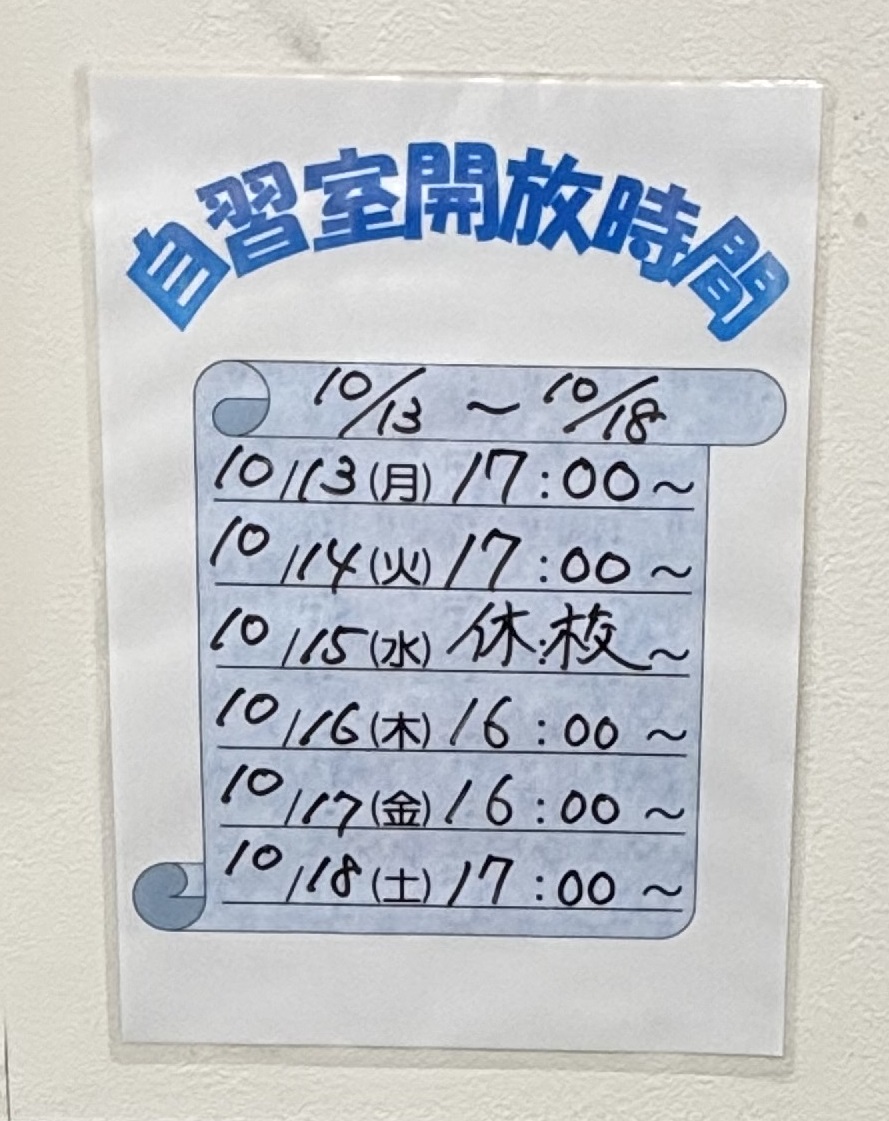 自習室開放時間
10/13 ~ 10/18
10/13(月) 17:00~
10/14(火) 17:00~
10/15(水) 休:校~
10/16(木) 16:00~
10/17(金) 16:00~
10/18(土) 17:00~